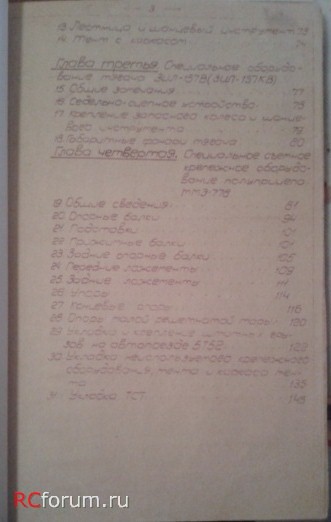 - 3 -
13 Лестница и шанцевый инструмент 73
14 Тент с каркасом 74
Глава третья Специальное оборудо-
вание тягача ЗИЛ-157В (ЗИЛ-157КВ)
15 Общие замечания 77
16 Седельно-сцепное устройство 78
17 Крепление запасного колеса и шанце-
вого инструмента 79
18 Габаритные фонари тягача 80
Глава четвертая. Специальное съемное
крепежное оборудо-
вание полуприцепа
ММЗ-778
19 Общие сведения 81
20 Опорные балки
21 Подставки 101
22 Прижимные балки 101
23 Задние опорные балки 105
24 Передние ложементы 109
25 Задние ложементы
26 Упоры 114
27 Концевые опоры 116
28 Опоры малой решетчатой тары 120
29 Укладка и крепление
на автопоезде 5Т52
30 Укладка неиспользуемого крепежного
оборудования, тента и каркаса тен-
та 135
31 Укладка 148
RCforum.ru